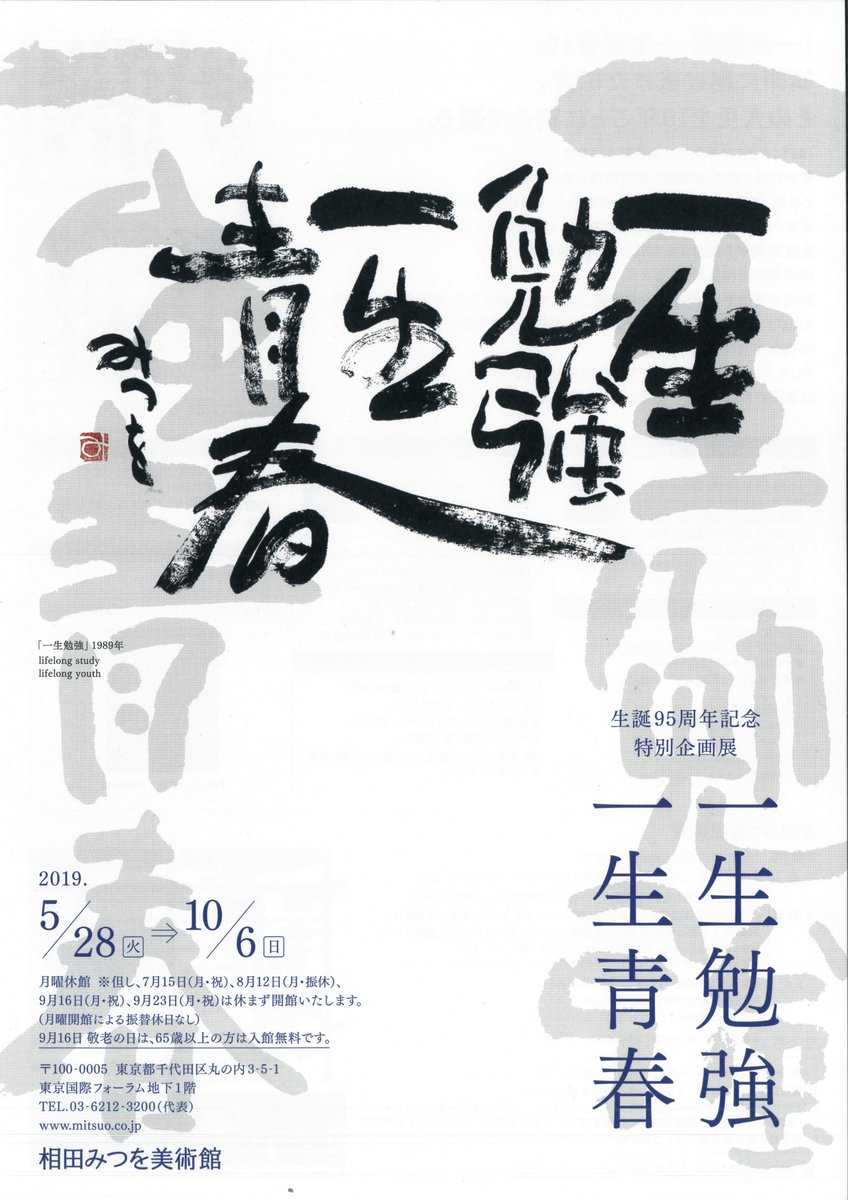 一生
勉強
一生
青春
みつを
「一生勉強」1989年
lifelong study
lifelong youth
生誕95周年記念
特別企画展
一生勉強
一生青春
2019.
5/28(火)⇒10/6(日)
月曜休館 ※但し、7月15日(月・祝)、8月12日(月・振休)、
9月16日(月・祝)、9月23日(月・祝)は休まず開館いたします。
(月曜開館による振替休日なし)
9月16日 敬老の日は、65歳以上の方は入館無料です。
〒100-0005 東京都千代田区丸の内3-5-1
東京国際フォーラム地下1階
TEL.03-6212-3200(代表)
www.mitsuo.co.jp
相田みつを美術館